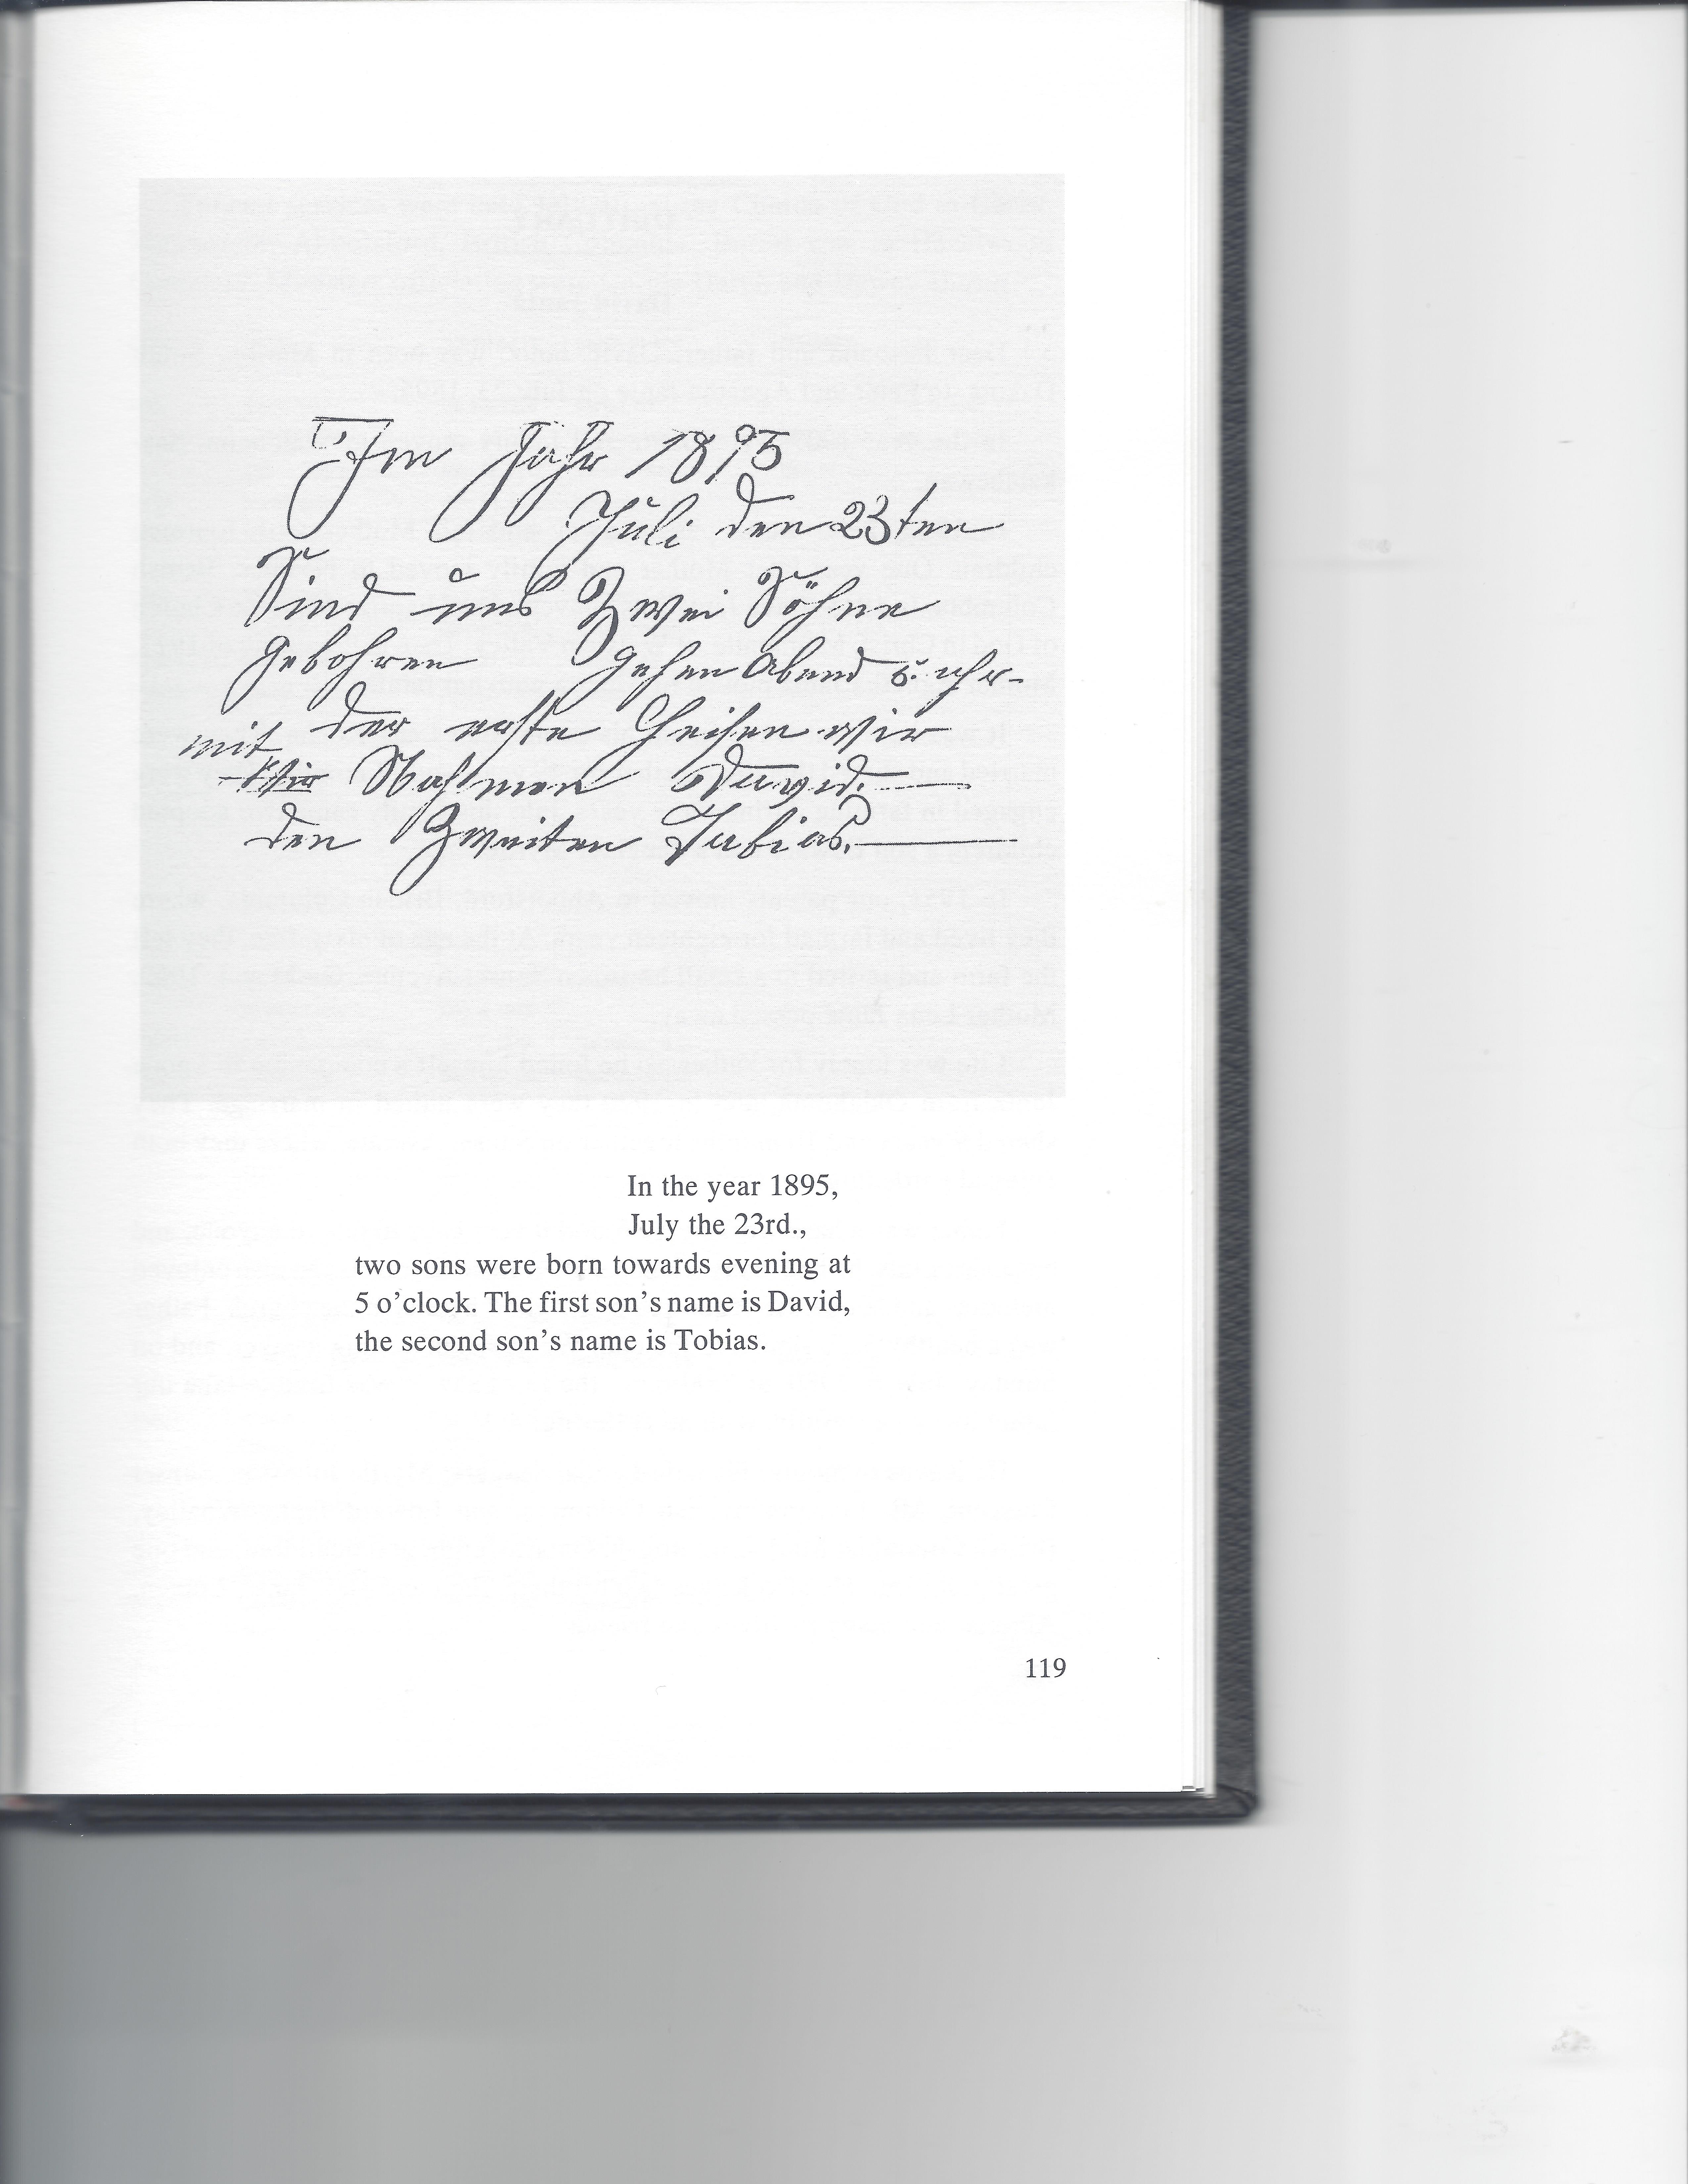 Im Jahr 1895
Juli den 23ten
Sind uns Zwei Söhne
gebohren gehen Abend 5. uhr-
mit der erste Heisen wir
Wir Nahmen David.
den Zweiten Tobias.
In the year 1895,
July the 23rd.,
two sons were born towards evening at
5 o'clock. The first son's name is David,
the second son's name is Tobias.
119